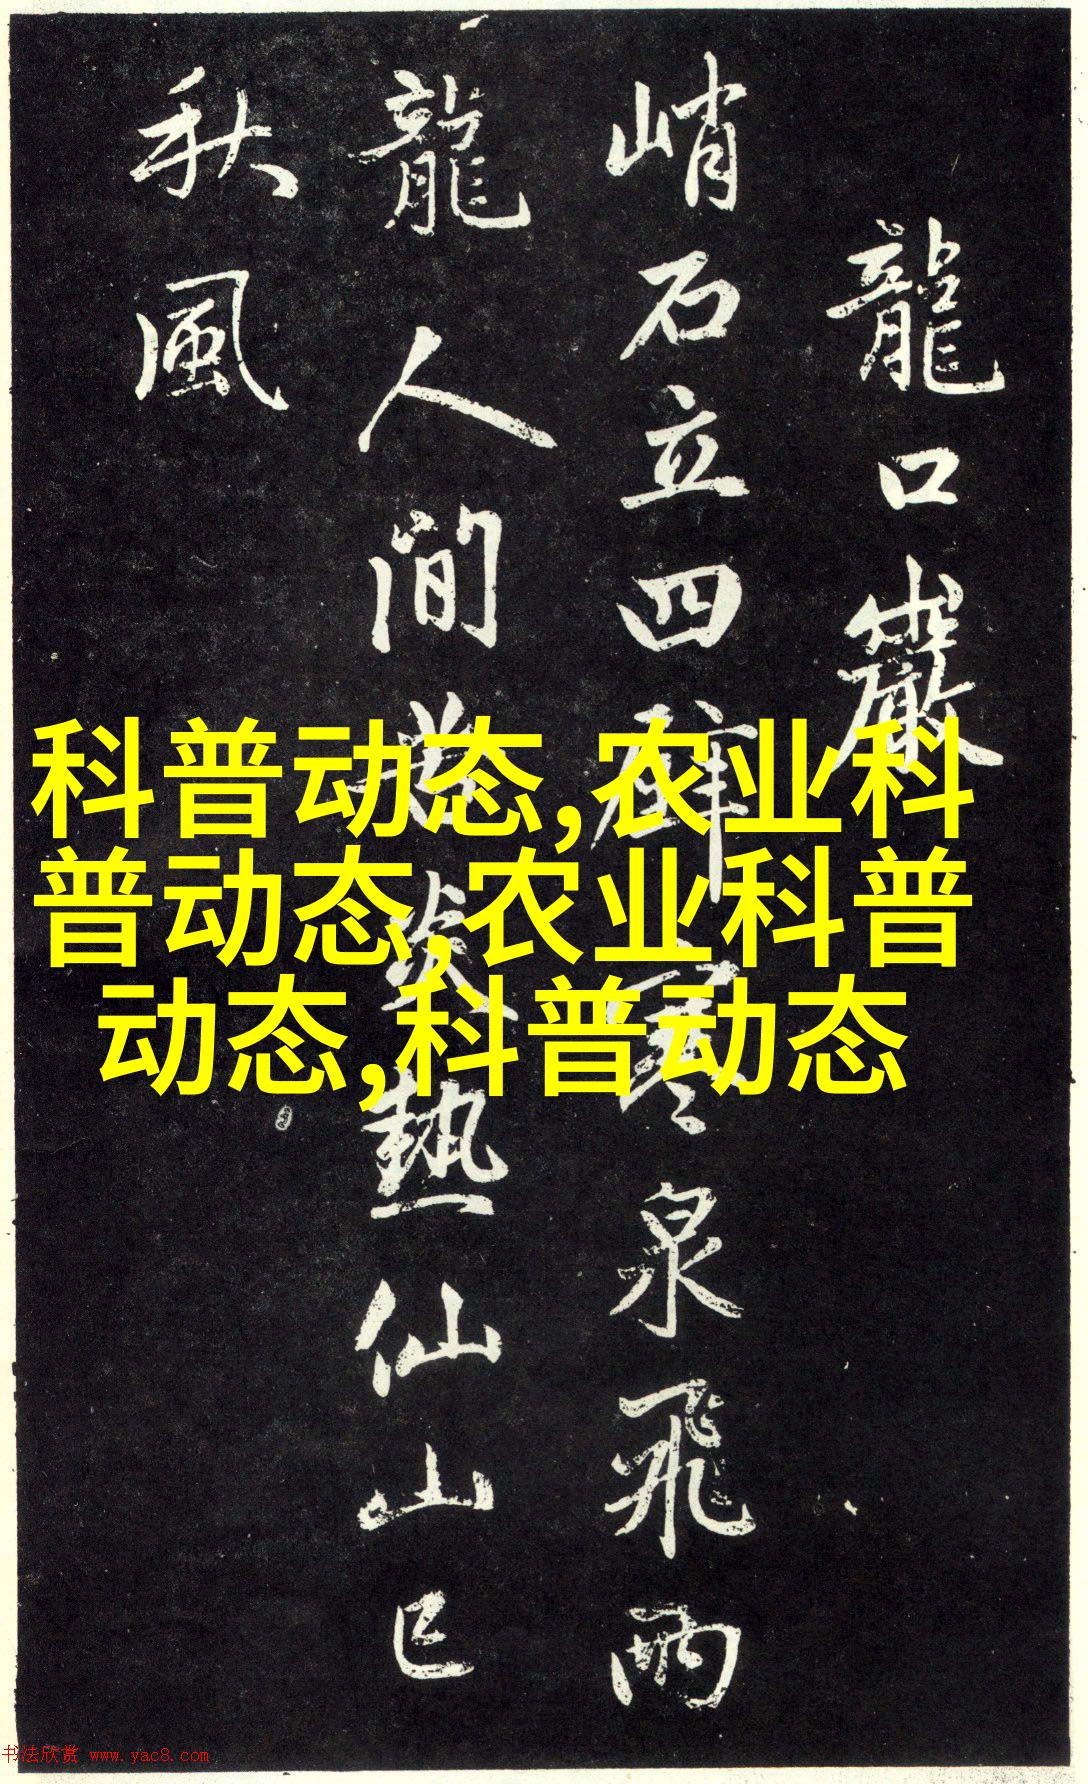 龍口巖
峭石立四壁寒泉飛兩
龍人間苦炎熱仙山已
秋風
科普动态,农业科
普动态,农业科普
动态,科普动态
书法欣赏 www.yac8.com